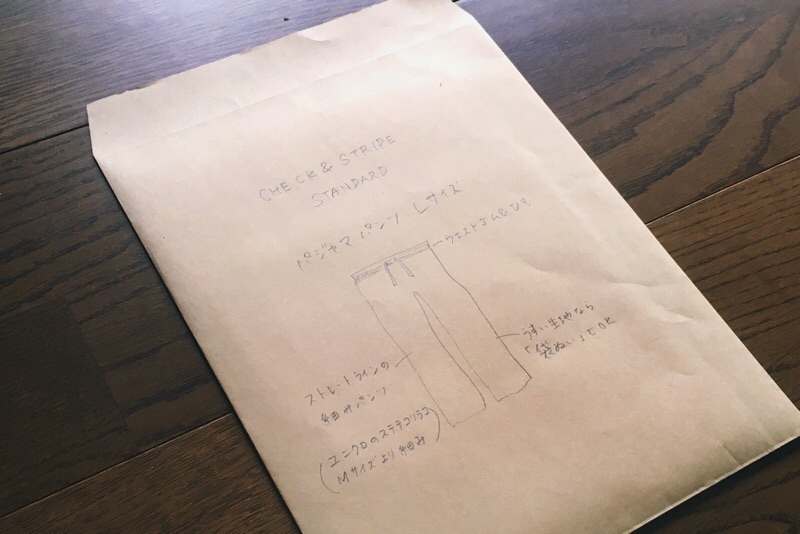 CHECK & STRIPE
STANDARD
パジャマパンツ Lサイズ
ウエストゴム&ひも
うすい生地なら
「袋ぬい」でOK
ストレートラインの
細みパンツ
(ユニクロのステテコ
Mサイズより細み)